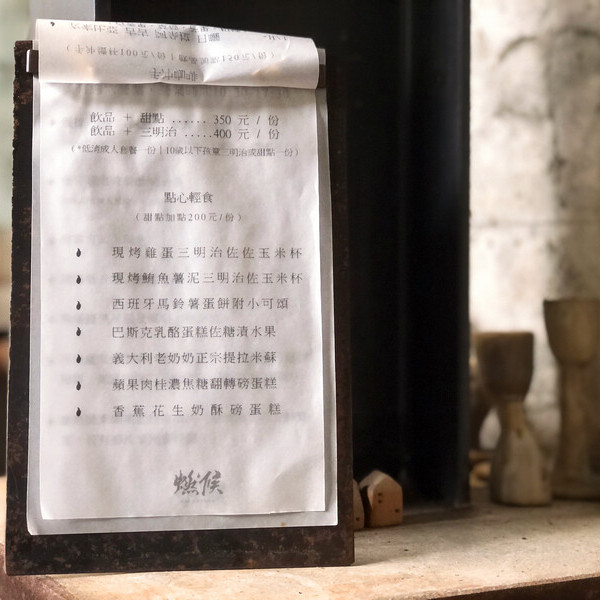 飲品 + 甜點 ...... 350 元 / 份
飲品 + 三明治 .....400 元 / 份
(*低消成人套餐一份 | 10歲以下孩童三明治或甜點一份)
點心輕食
( 甜點加點200元/份 )
現烤雞蛋三明治佐佐玉米杯
現烤鮪魚薯泥三明治佐佐玉米杯
西班牙馬鈴薯蛋餅附小可頌
巴斯克乳酪蛋糕佐糖漬水果
義大利老奶奶正宗提拉米蘇
蘋果肉桂濃焦糖翻轉磅蛋糕
香蕉花生奶酥磅蛋糕